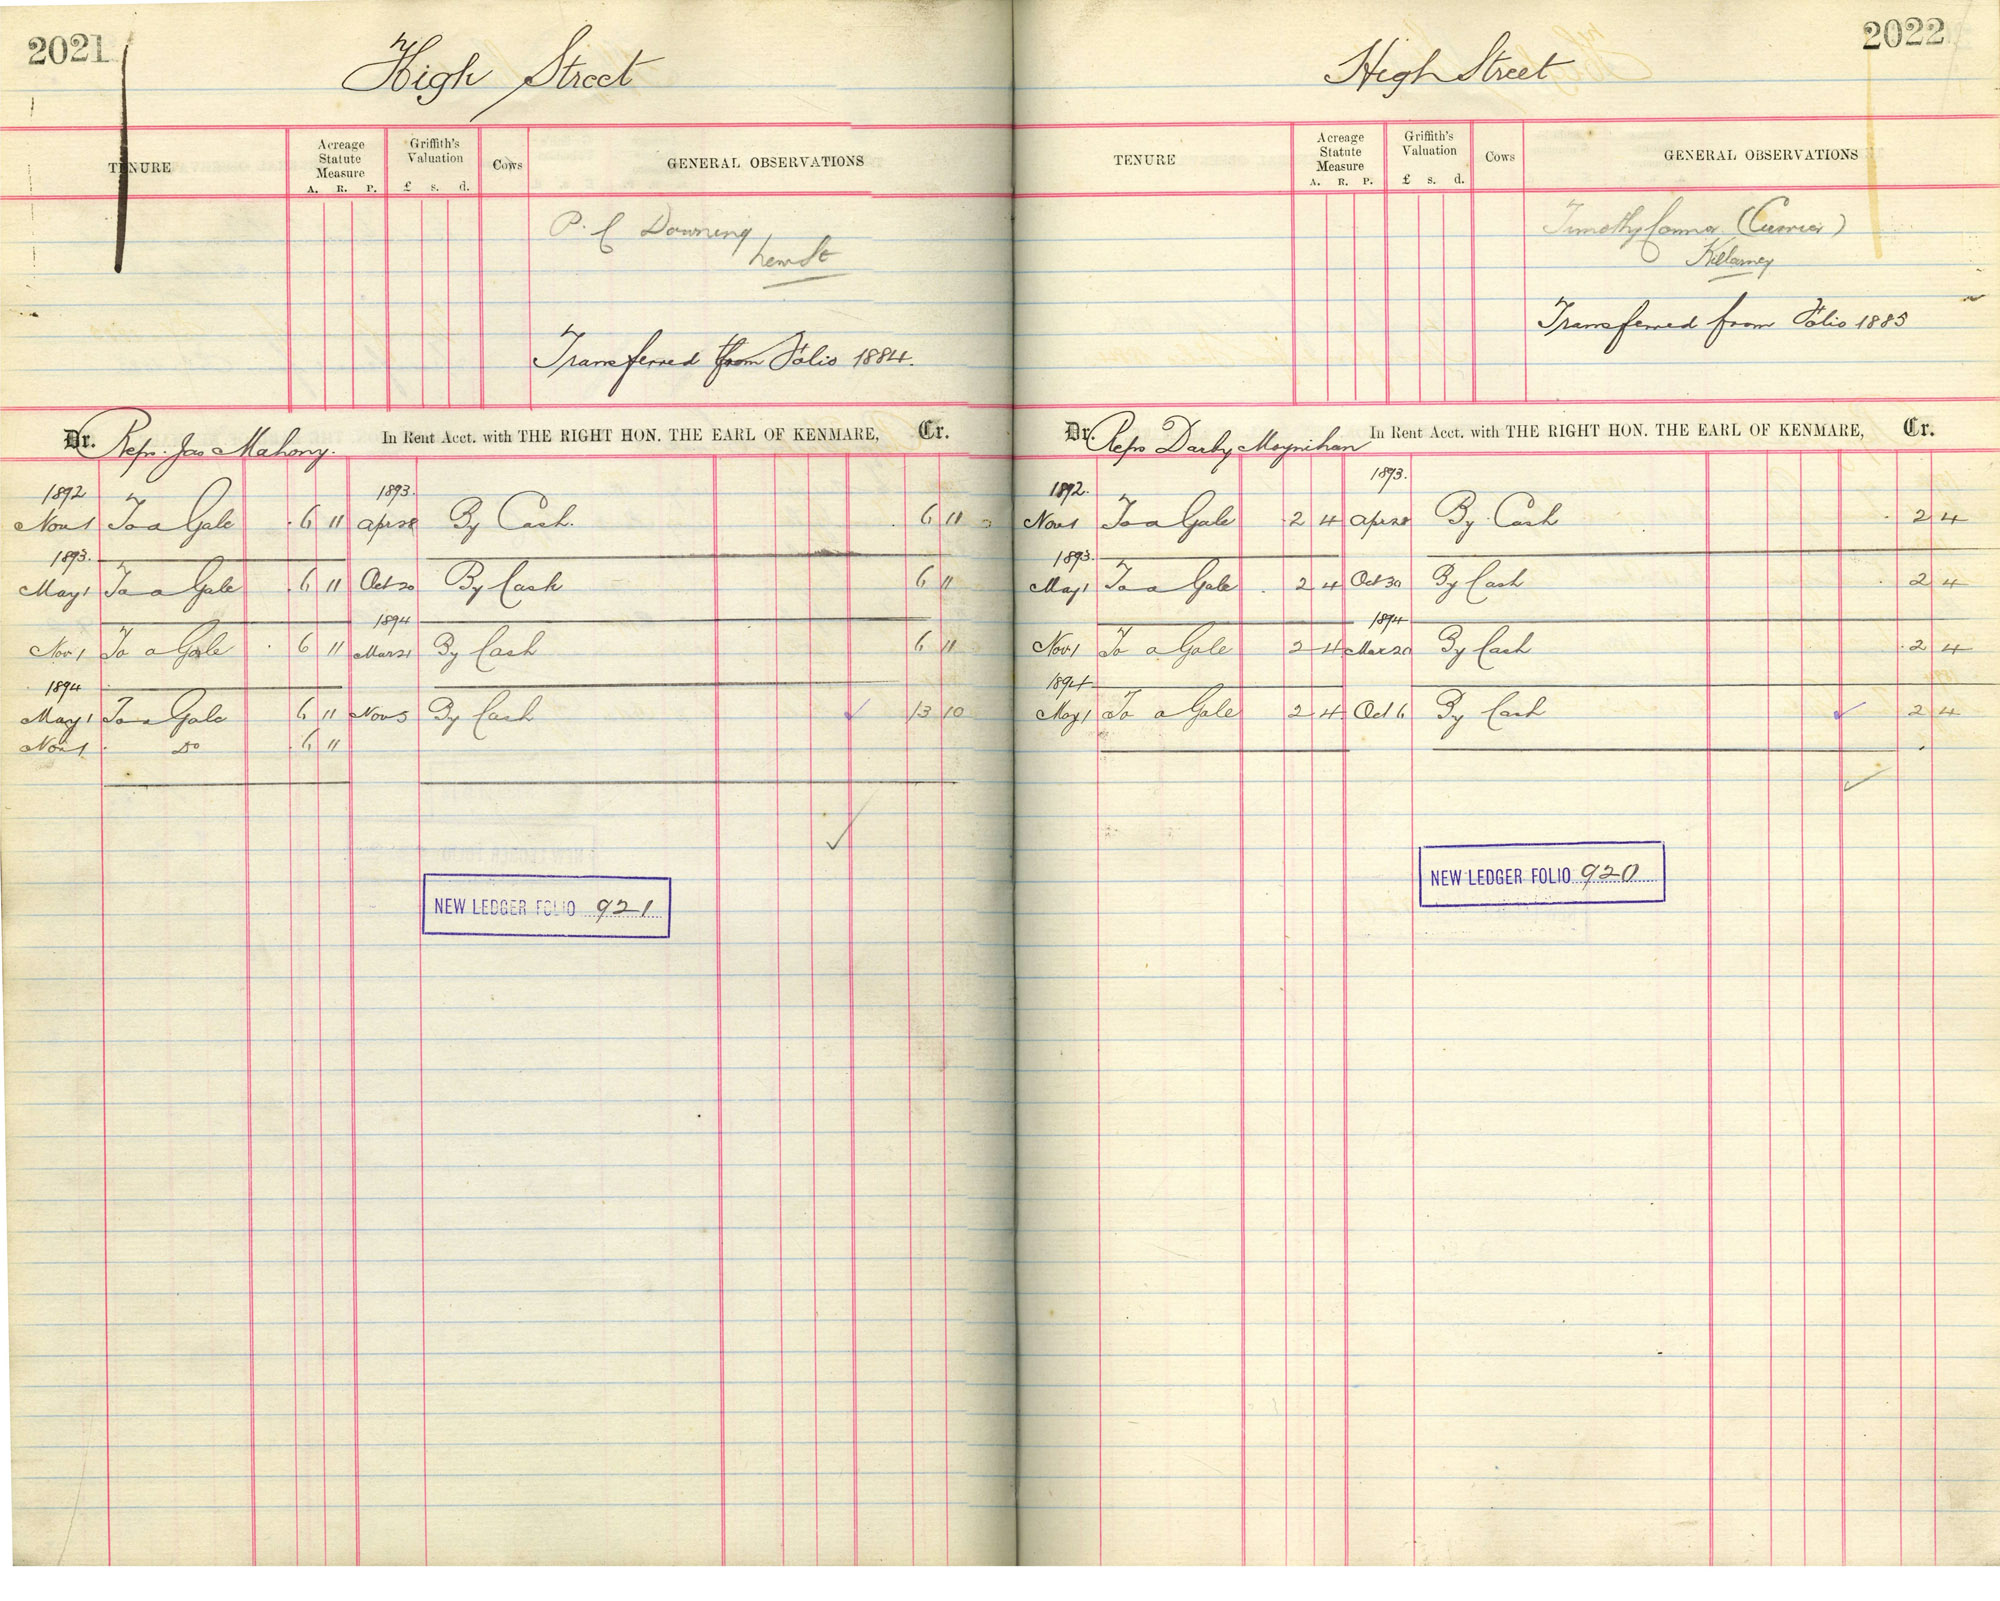 2021
High Street
TENURE Acreage Statute Measure A. R. P. Griffith's Valuation £ s. d. Cows GENERAL OBSERVATIONS
P. C Downing
New St
Transferred from Folio 1884.
Dr. Reps. Jas Mahony. In Rent Acct. with THE RIGHT HON. THE EARL OF KENMARE, Cr.
1892 1893.
Nov 1 To a Gale 6 11 Apr 28 By Cash. 6 11
1893.
May 1 To a Gale 6 11 Oct 20 By Cash 6 11
1894
Nov 1 To a Gale 6 11 Mar 21 By Cash 6 11
1894
May 1 To a Gale 6 11 Nov 5 By Cash 13 10
Nov 1 Do 6 11
NEW LEDGER FOLIO 921
2022
High Street
TENURE Acreage Statute Measure A. R. P. Griffith's Valuation £ s. d. Cows GENERAL OBSERVATIONS
Timothy Connor (Currier)
Killarney
Transferred from Folio 1885
Dr. Reps Darby Moynihan In Rent Acct. with THE RIGHT HON. THE EARL OF KENMARE, Cr.
1892. 1893.
Nov 1 To a Gale 2 4 Apr 28 By Cash 2 4
1893.
May 1 To a Gale 2 4 Oct 30 By Cash 2 4
1894
Nov 1 To a Gale 2 4 Mar 20 By Cash 2 4
1894
May 1 To a Gale 2 4 Oct 6 By Cash 2 4
NEW LEDGER FOLIO 920